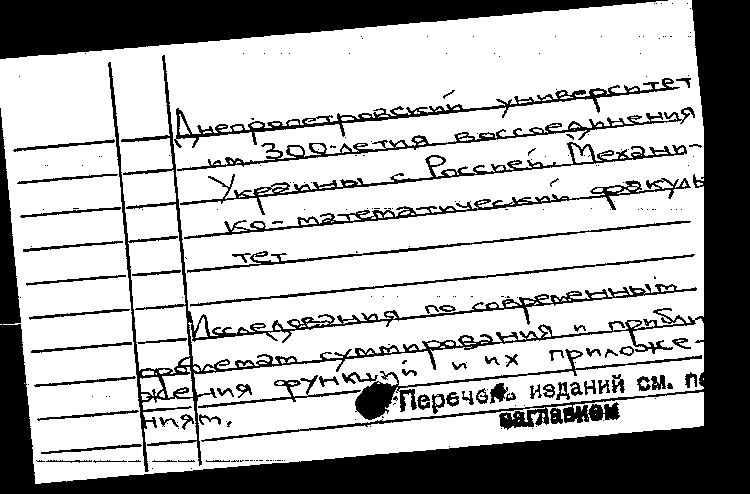 Днепропетровский университет
им. 300-летия воссоединения
Украины с Россией. Механи-
ко-математический факуль
тет
Исследования по современным
проблемам суммирования и прибли
жения функций и их приложе-
ниям.
Перечень изданий см. по
заглавием